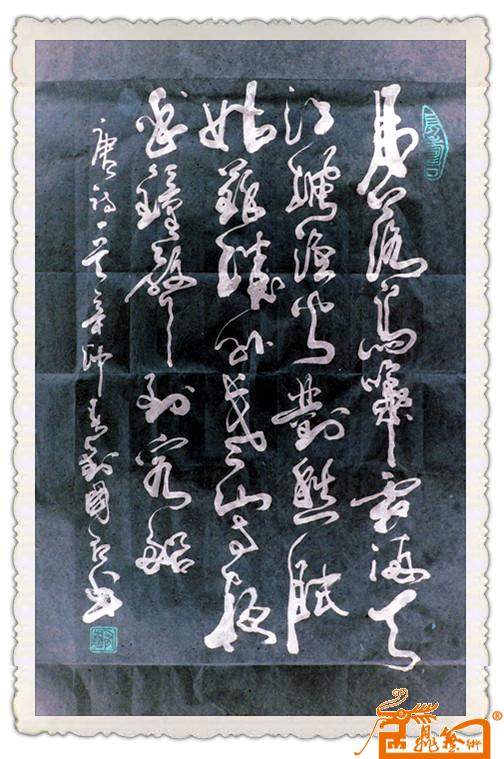 月落烏啼霜滿天
江楓漁火對愁眠
姑蘇城外寒山寺夜
半鐘聲到客船
唐詩一首辛卯春劉國書
鼎藝術
®